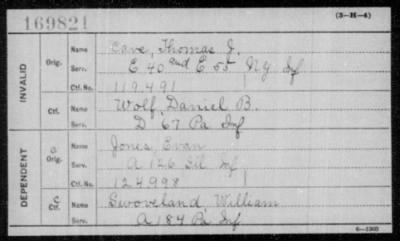 169821
(3-H-4)
INVALID
Orig.
Name Cave, Thomas J.
Serv. E 40 and E 55 N.Y. Inf
Ctf. No. 119,491
Ctf.
Name Wolf, Daniel B.
Serv. D 67 Pa Inf
DEPENDENT
C Orig.
Name Jones, Evan
Serv. A 126 Ill Inf
Ctf. No. 124998
C Ctf.
Name Swoveland, William
Serv. A 184 Pa Inf